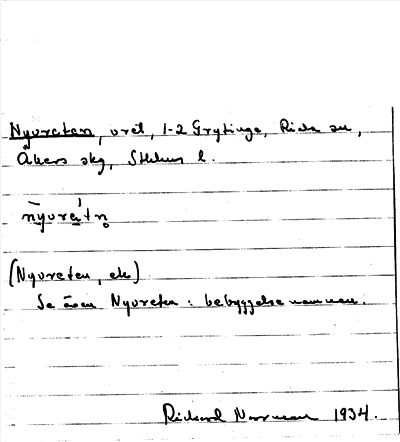 Nyvreten, vret, 1-2 Grytinge, Riala sn,
Åkers skg, Sthlms l.
nyvre̱tn̥
(Nyvreten, ek)
Se även Nyvreten : bebyggelsenamnen.
Richard Norrman 1934.